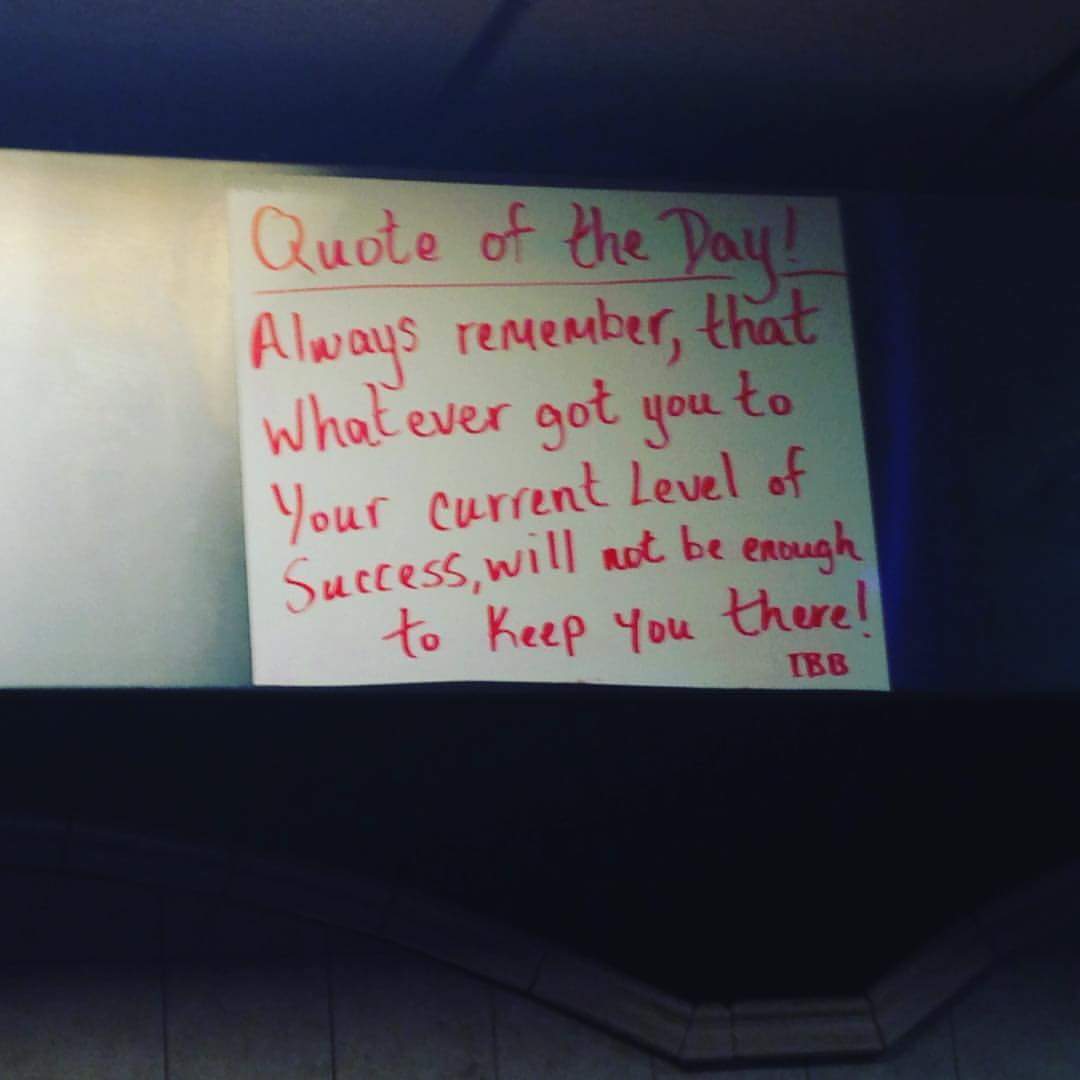 Quote of the Day!
Always remember, that
Whatever got you to
Your current Level of
Success, will not be enough
to Keep You there!
IBB